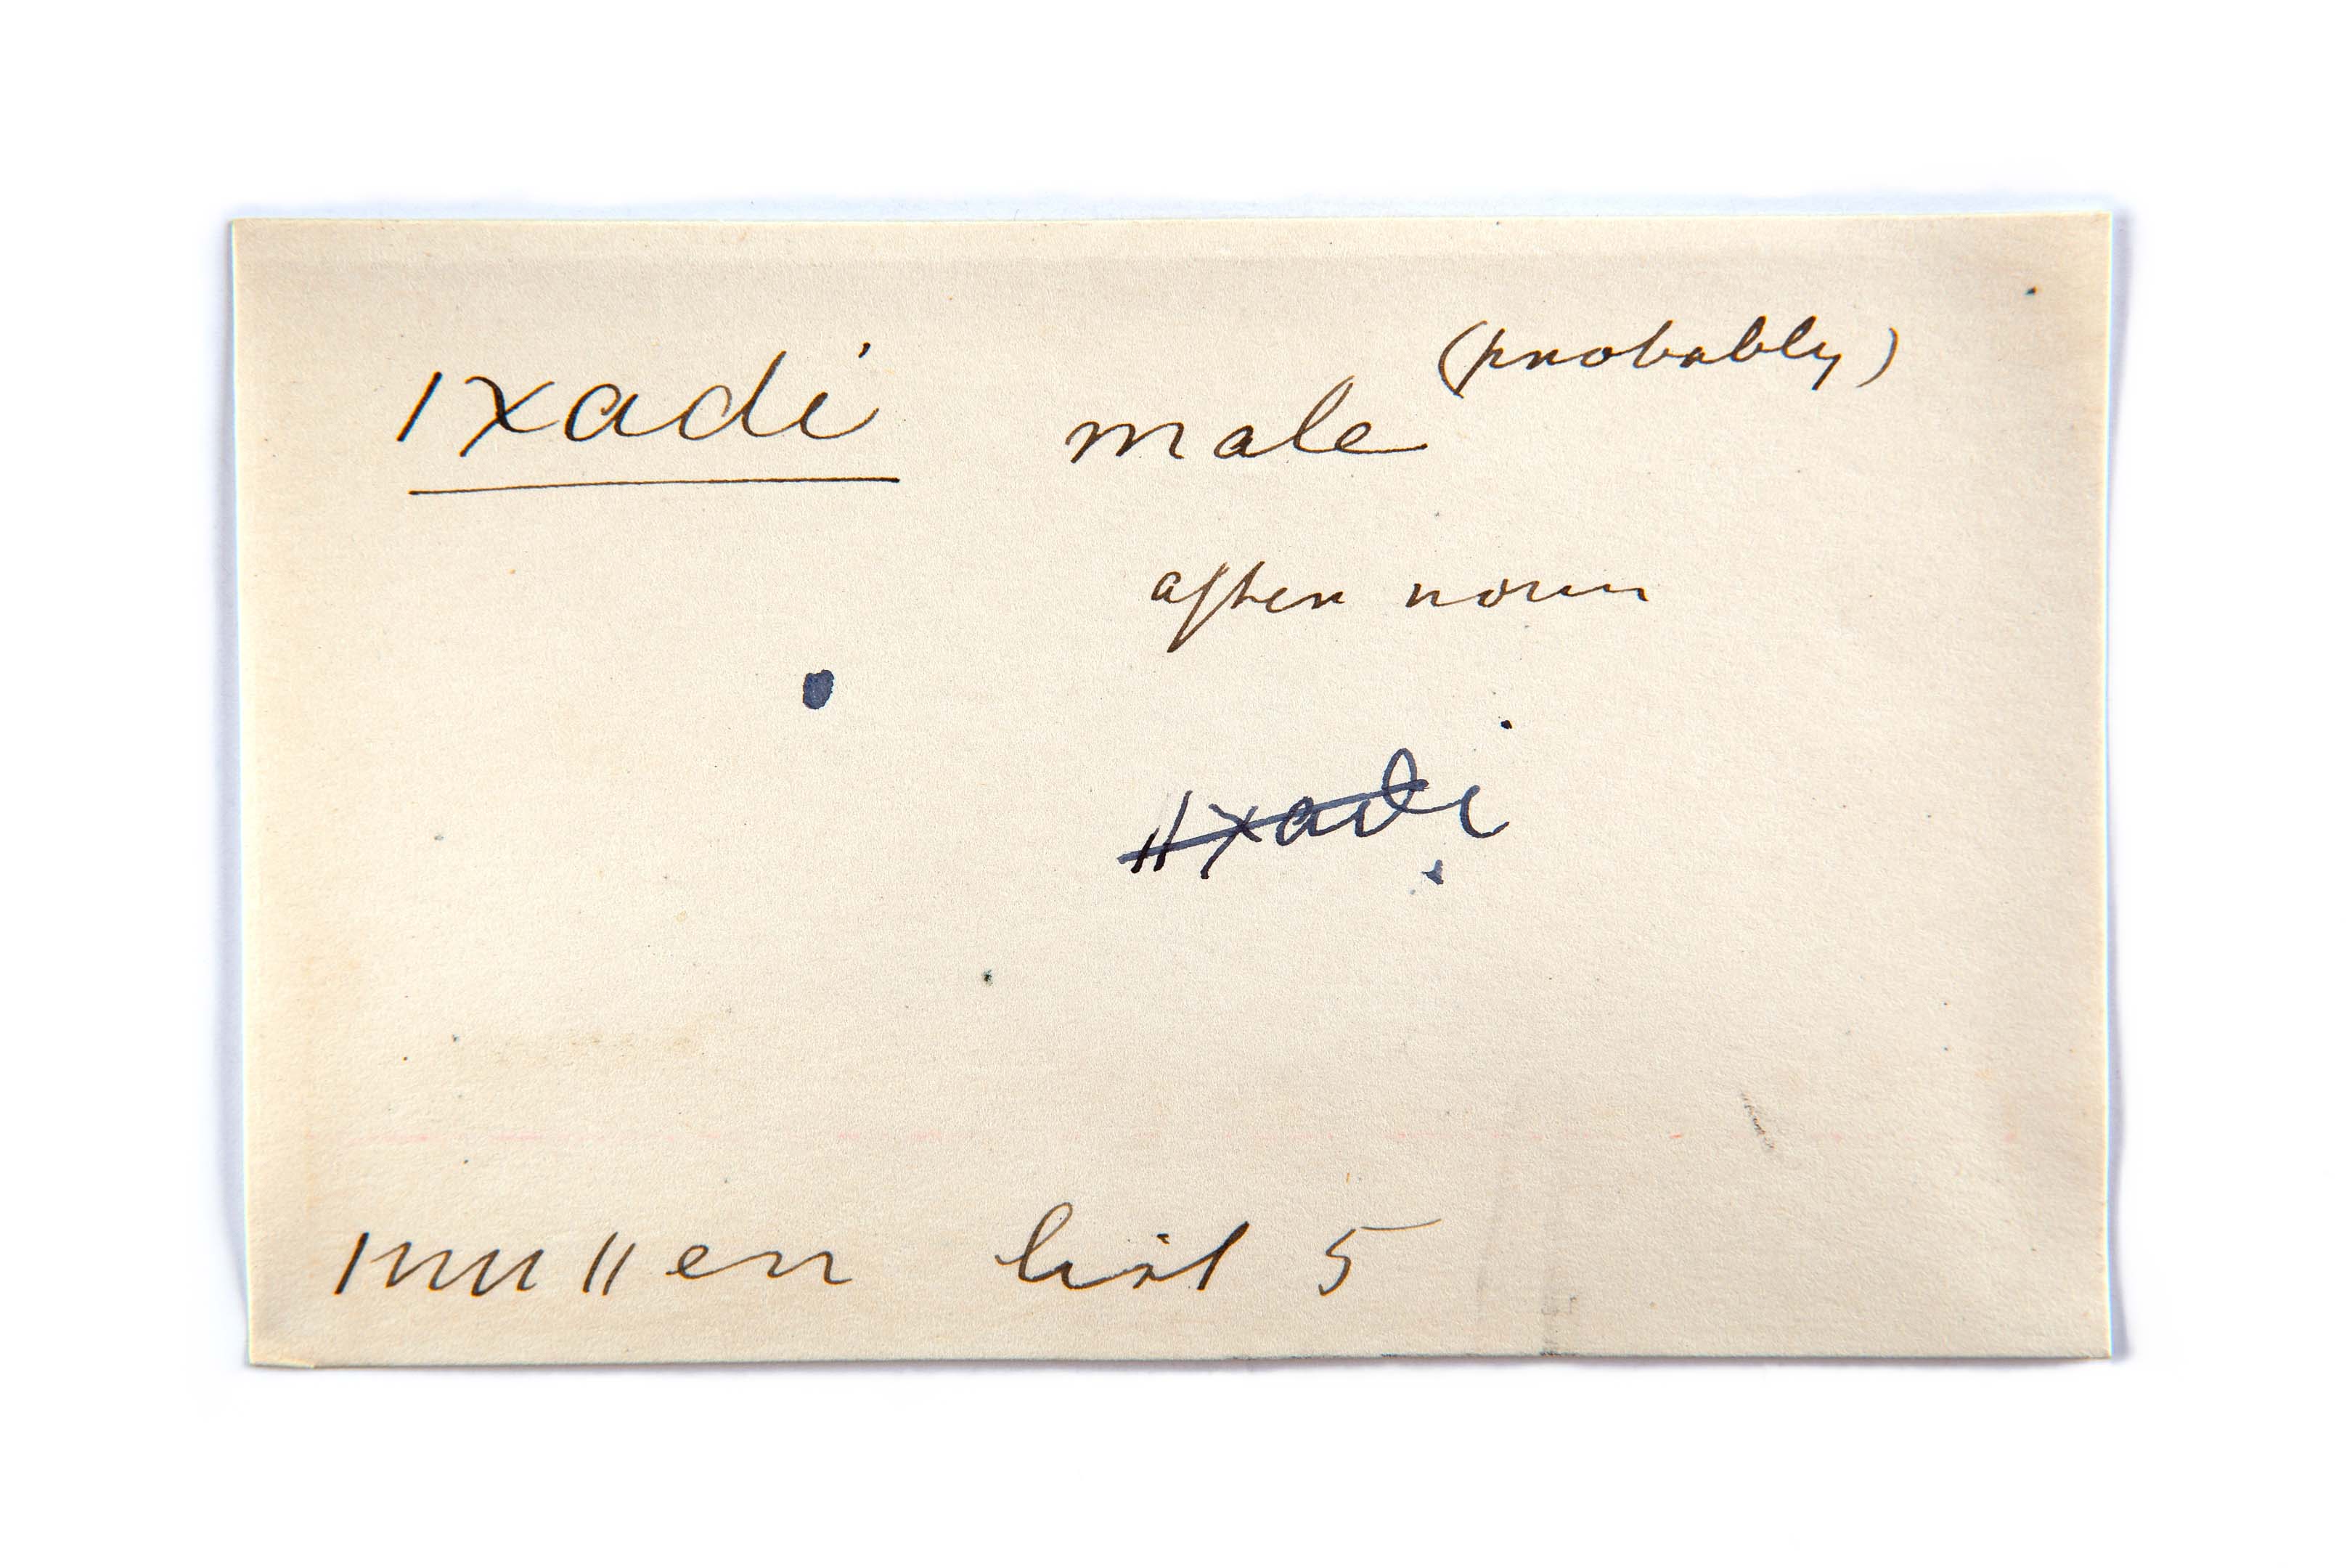 |xadi male (probably)
after noun
||xadi
|nu||en list 5